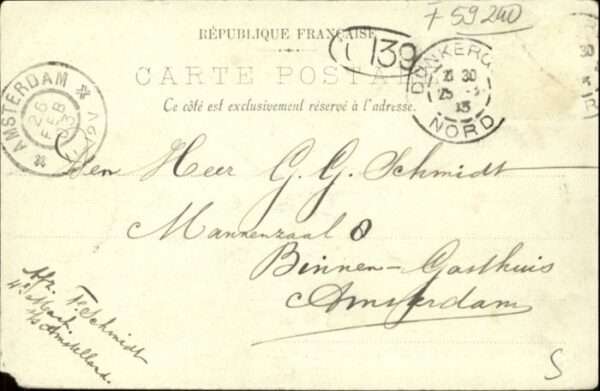 + 59240
RÉPUBLIQUE FRANÇAISE
139
CARTE POSTALE
Ce côté est exclusivement réservé à l'adresse.
AMSTERDAM
26 FEB
DUNKERQUE
NORD
30
Den Heer G. G. Schmidt
Mannenzaal 8
Binnen-Gasthuis
Amsterdam
Afz. F. Schmidt
4e Mach.
S/s Amstelland.
S